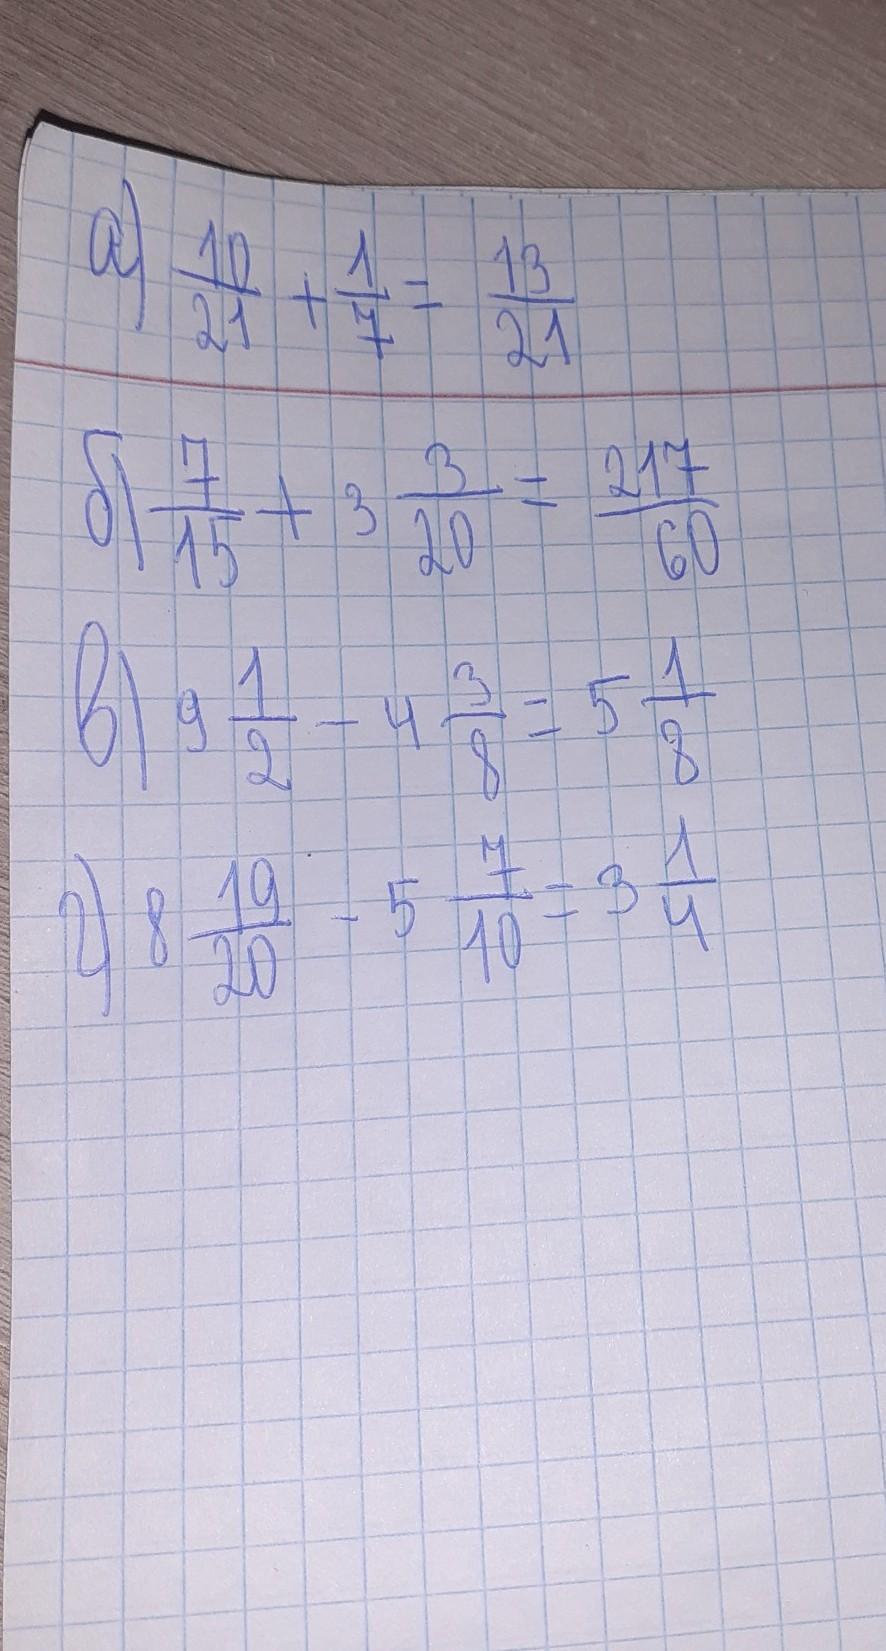 а) 10/21 + 1/7 = 13/21
б) 7/15 + 3 3/20 = 217/60
в) 9 1/2 - 4 3/8 = 5 1/8
г) 8 19/20 - 5 7/10 = 3 1/4